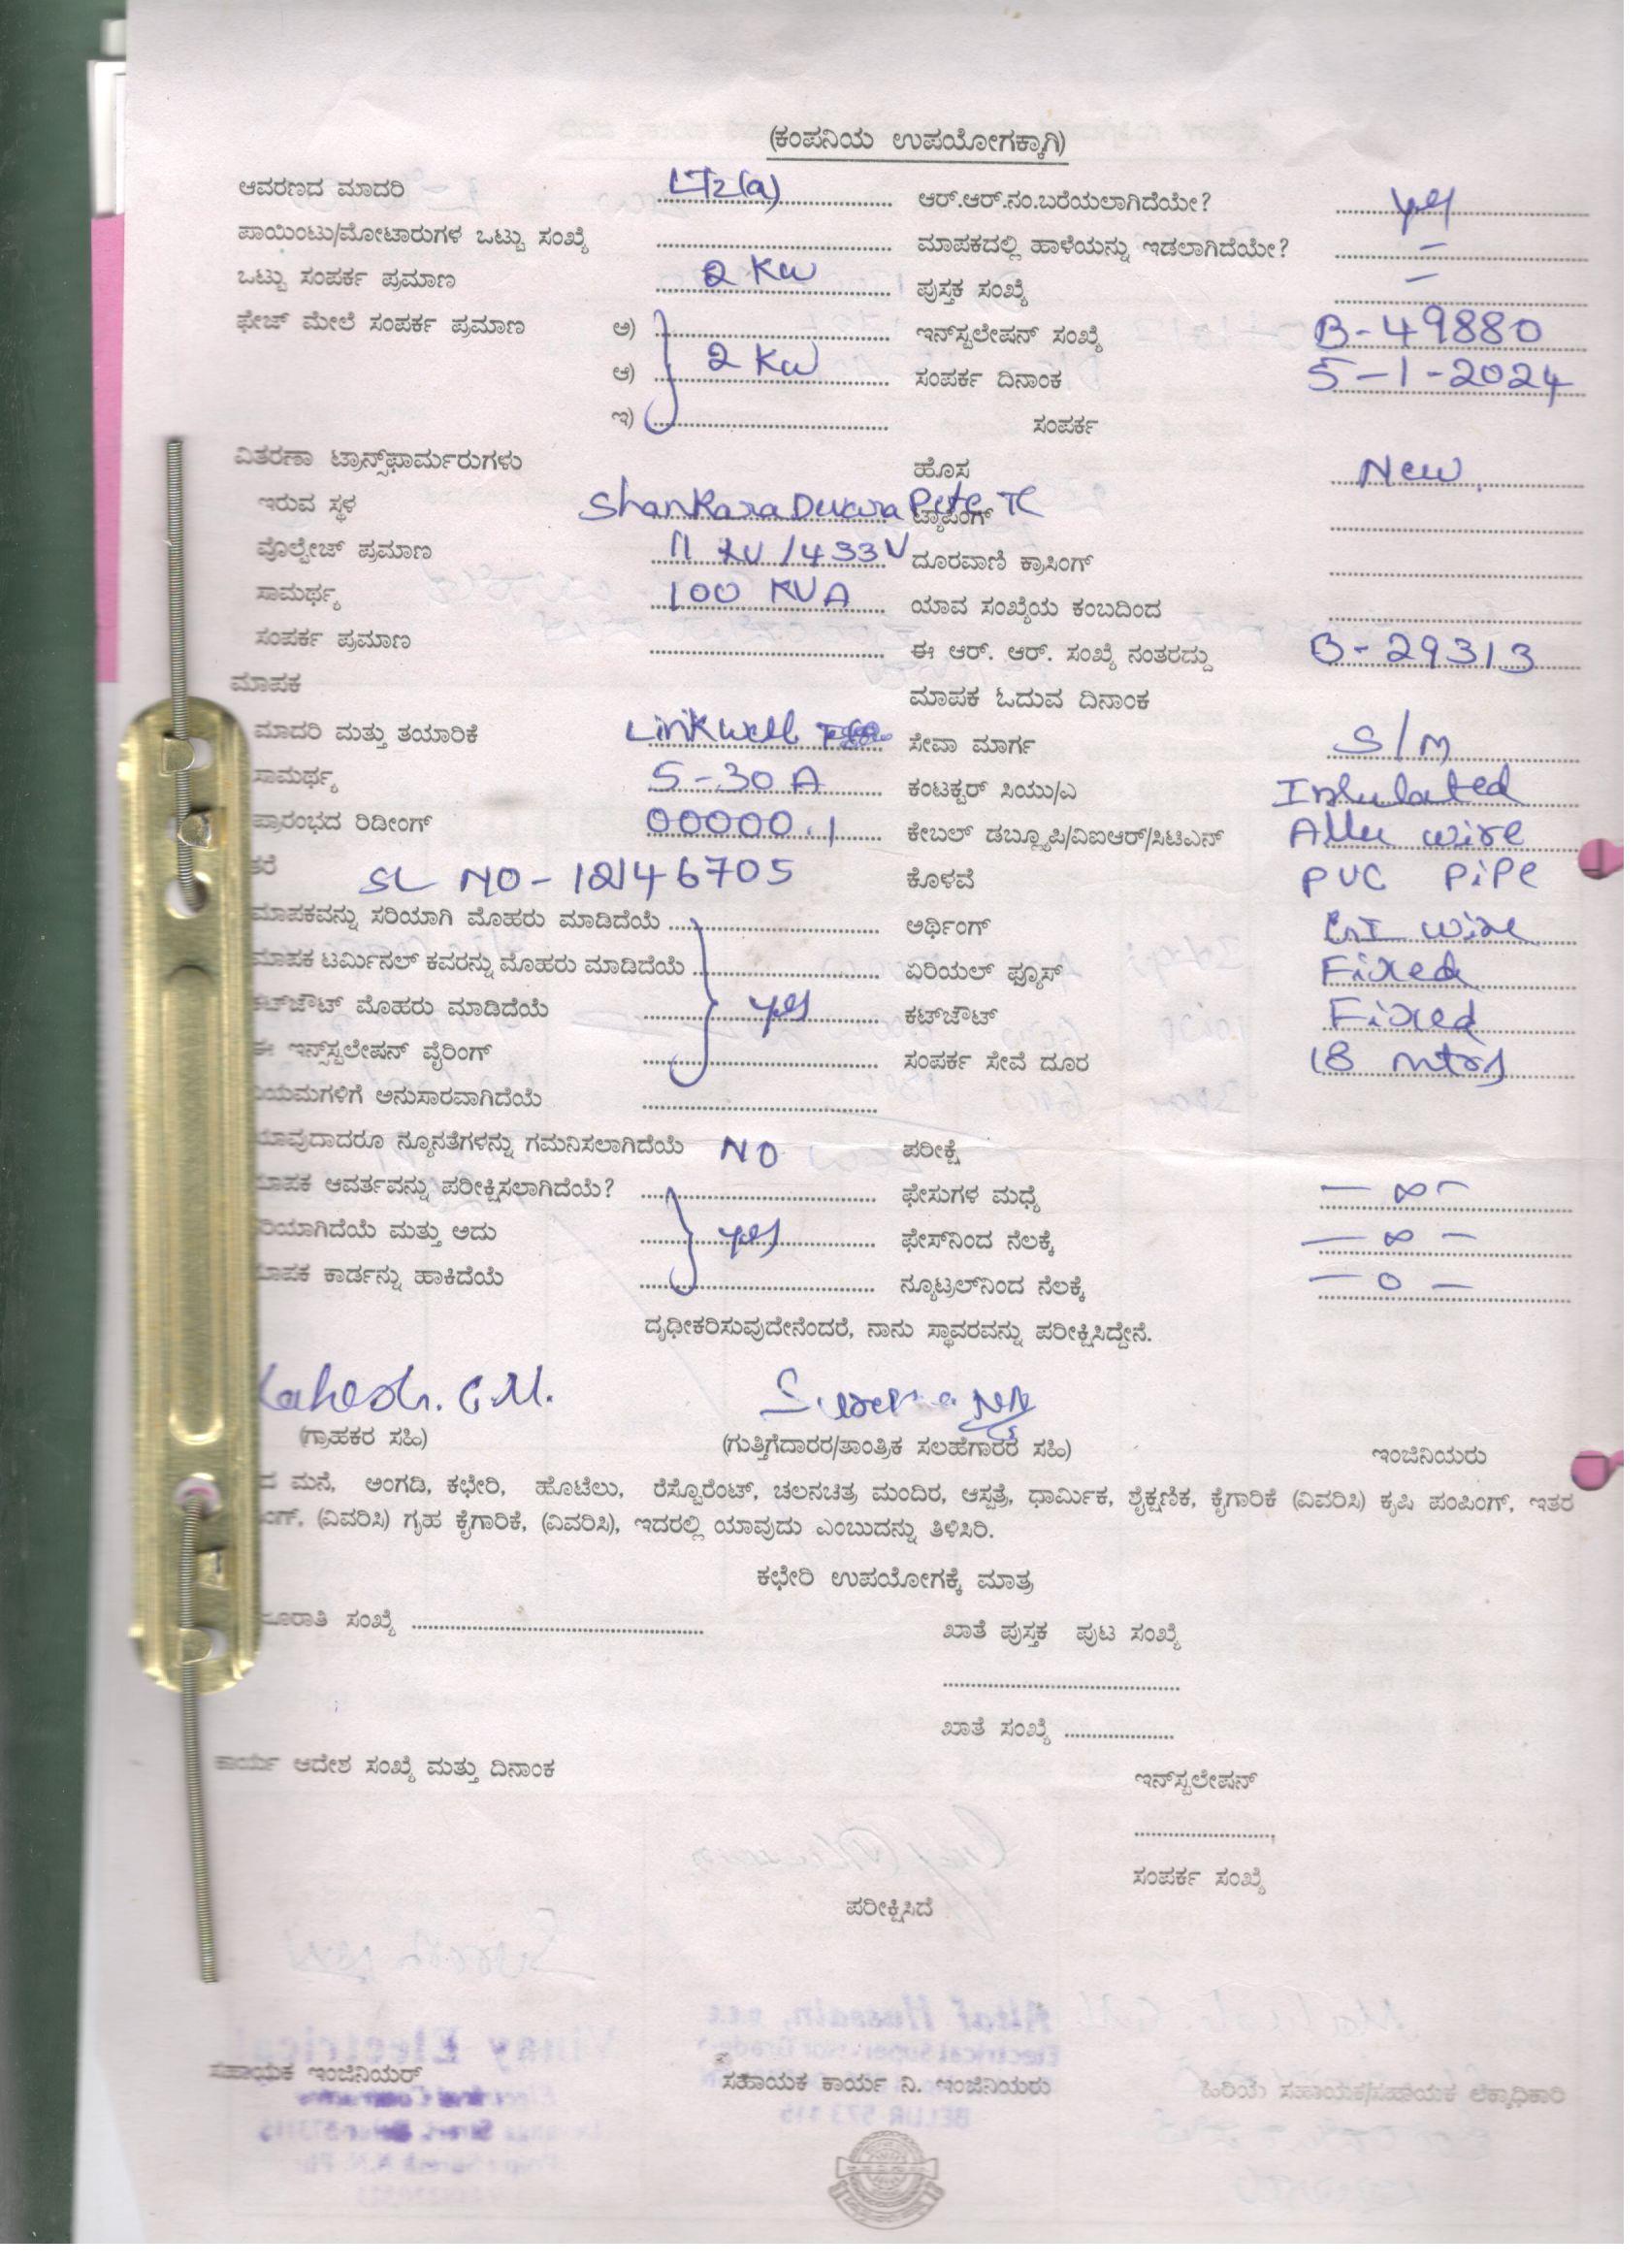 (ಕಂಪನಿಯ ಉಪಯೋಗಕ್ಕಾಗಿ)
ಆವರಣದ ಮಾದರಿ LT2(a) ಆರ್.ಆರ್.ನಂ.ಬರೆಯಲಾಗಿದೆಯೇ? yes
ಪಾಯಿಂಟು/ಮೋಟಾರುಗಳ ಒಟ್ಟು ಸಂಖ್ಯೆ ಮಾಪಕದಲ್ಲಿ ಹಾಳೆಯನ್ನು ಇಡಲಾಗಿದೆಯೇ? –
ಒಟ್ಟು ಸಂಪರ್ಕ ಪ್ರಮಾಣ 2 KW ಪುಸ್ತಕ ಸಂಖ್ಯೆ –
ಫೇಜ್ ಮೇಲೆ ಸಂಪರ್ಕ ಪ್ರಮಾಣ ಅ) ಇನ್‌ಸ್ಟಲೇಷನ್ ಸಂಖ್ಯೆ B-49880
ಆ) 2 KW ಸಂಪರ್ಕ ದಿನಾಂಕ 5-1-2024
ಇ) ಸಂಪರ್ಕ
ವಿತರಣಾ ಟ್ರಾನ್ಸ್‌ಫಾರ್ಮರುಗಳು ಹೊಸ New.
ಇರುವ ಸ್ಥಳ Shankara Devara Pete TC ಟ್ಯಾಪಿಂಗ್
ವೊಲ್ಟೇಜ್ ಪ್ರಮಾಣ 11 KV/433V ದೂರವಾಣಿ ಕ್ರಾಸಿಂಗ್
ಸಾಮರ್ಥ್ಯ 100 KVA ಯಾವ ಸಂಖ್ಯೆಯ ಕಂಬದಿಂದ
ಸಂಪರ್ಕ ಪ್ರಮಾಣ ಈ ಆರ್. ಆರ್. ಸಂಖ್ಯೆ ನಂತರದ್ದು B-29313
ಮಾಪಕ ಮಾಪಕ ಓದುವ ದಿನಾಂಕ
ಮಾದರಿ ಮತ್ತು ತಯಾರಿಕೆ Linkwell ಸೇವಾ ಮಾರ್ಗ S/M
ಸಾಮರ್ಥ್ಯ 5-30 A ಕಂಟಕ್ಟರ್ ಸಿಯು/ಎ Insulated
ಪ್ರಾರಂಭದ ರಿಡೀಂಗ್ 00000.1 ಕೇಬಲ್ ಡಬ್ಲ್ಯೂಪಿ/ವಿಐಆರ್/ಸಿಟಿಎಸ್ Allu wire
ತರೆ SL NO- 12146705 ಕೊಳವೆ PVC PiPe
ಮಾಪಕವನ್ನು ಸರಿಯಾಗಿ ಮೊಹರು ಮಾಡಿದೆಯೆ ಅರ್ಥಿಂಗ್ GI wire
ಮಾಪಕ ಟರ್ಮಿನಲ್ ಕವರನ್ನು ಮೊಹರು ಮಾಡಿದೆಯೆ ಏರಿಯಲ್ ಫ್ಯೂಸ್ Fixed
ಕಟ್‌ಜೌಟ್ ಮೊಹರು ಮಾಡಿದೆಯೆ yes ಕಟ್‌ಜೌಟ್ Fixed
ಈ ಇನ್ಸ್‌ಸ್ಟಲೇಷನ್ ವೈರಿಂಗ್ ಸಂಪರ್ಕ ಸೇವೆ ದೂರ 18 mtrs
ನಿಯಮಗಳಿಗೆ ಅನುಸಾರವಾಗಿದೆಯೆ
ಯಾವುದಾದರೂ ನ್ಯೂನತೆಗಳನ್ನು ಗಮನಿಸಲಾಗಿದೆಯೆ NO ಪರೀಕ್ಷೆ
ಮಾಪಕ ಆವರ್ತವನ್ನು ಪರೀಕ್ಷಿಸಲಾಗಿದೆಯೆ? ಫೇಸುಗಳ ಮಧ್ಯೆ – ∞ –
ಸರಿಯಾಗಿದೆಯೆ ಮತ್ತು ಅದು yes ಫೇಸ್‌ನಿಂದ ನೆಲಕ್ಕೆ – ∞ –
ಮಾಪಕ ಕಾರ್ಡನ್ನು ಹಾಕಿದೆಯೆ ನ್ಯೂಟ್ರಲ್‌ನಿಂದ ನೆಲಕ್ಕೆ – 0 –
ದೃಢೀಕರಿಸುವುದೇನೆಂದರೆ, ನಾನು ಸ್ಥಾವರವನ್ನು ಪರೀಕ್ಷಿಸಿದ್ದೇನೆ.
C.M.
(ಗ್ರಾಹಕರ ಸಹಿ) (ಗುತ್ತಿಗೆದಾರರ/ತಾಂತ್ರಿಕ ಸಲಹೆಗಾರರ ಸಹಿ) ಇಂಜಿನಿಯರು
ದ ಮನೆ, ಅಂಗಡಿ, ಕಛೇರಿ, ಹೊಟೆಲು, ರೆಸ್ಟೊರೆಂಟ್, ಚಲನಚಿತ್ರ ಮಂದಿರ, ಆಸ್ಪತ್ರೆ, ಧಾರ್ಮಿಕ, ಶೈಕ್ಷಣಿಕ, ಕೈಗಾರಿಕೆ (ವಿವರಿಸಿ) ಕೃಷಿ ಪಂಪಿಂಗ್, ಇತರ
ಂಗ್, (ವಿವರಿಸಿ) ಗೃಹ ಕೈಗಾರಿಕೆ, (ವಿವರಿಸಿ), ಇದರಲ್ಲಿ ಯಾವುದು ಎಂಬುದನ್ನು ತಿಳಿಸಿರಿ.
ಕಛೇರಿ ಉಪಯೋಗಕ್ಕೆ ಮಾತ್ರ
ಸಂಖ್ಯೆ ಖಾತೆ ಪುಸ್ತಕ ಪುಟ ಸಂಖ್ಯೆ
ಖಾತೆ ಸಂಖ್ಯೆ
ಕಾರ್ಯ ಆದೇಶ ಸಂಖ್ಯೆ ಮತ್ತು ದಿನಾಂಕ
ಇನ್‌ಸ್ಟಲೇಷನ್
ಸಂಪರ್ಕ ಸಂಖ್ಯೆ
ಪರೀಕ್ಷಿಸಿದೆ
ಸಹಾಯಕ ಇಂಜಿನಿಯರ್ ಸಹಾಯಕ ಕಾರ್ಯ ನಿ. ಇಂಜಿನಿಯರು ಹಿರಿಯ ಸಹಾಯಕ/ಸಹಾಯಕ ಲೆಕ್ಕಾಧಿಕಾರಿ